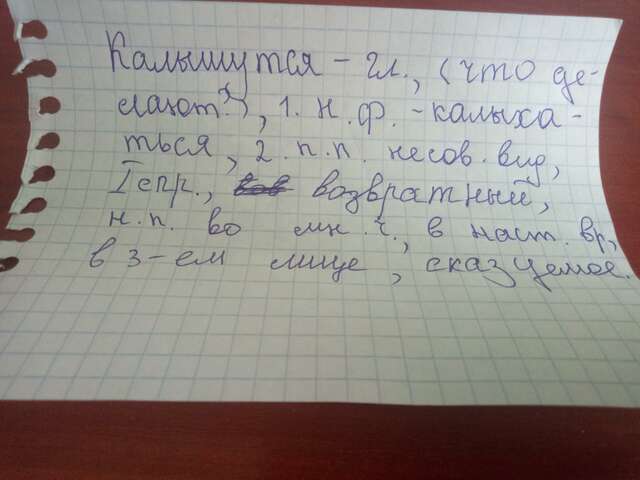 Калышутся - гл., (что де-
лают?), 1. н. ф. - калыха-
ться, 2. п. п. несов. вид,
I спр., возвратный,
н. п. во мн. ч., в наст. вр,
в 3-ем лице, сказуемое.